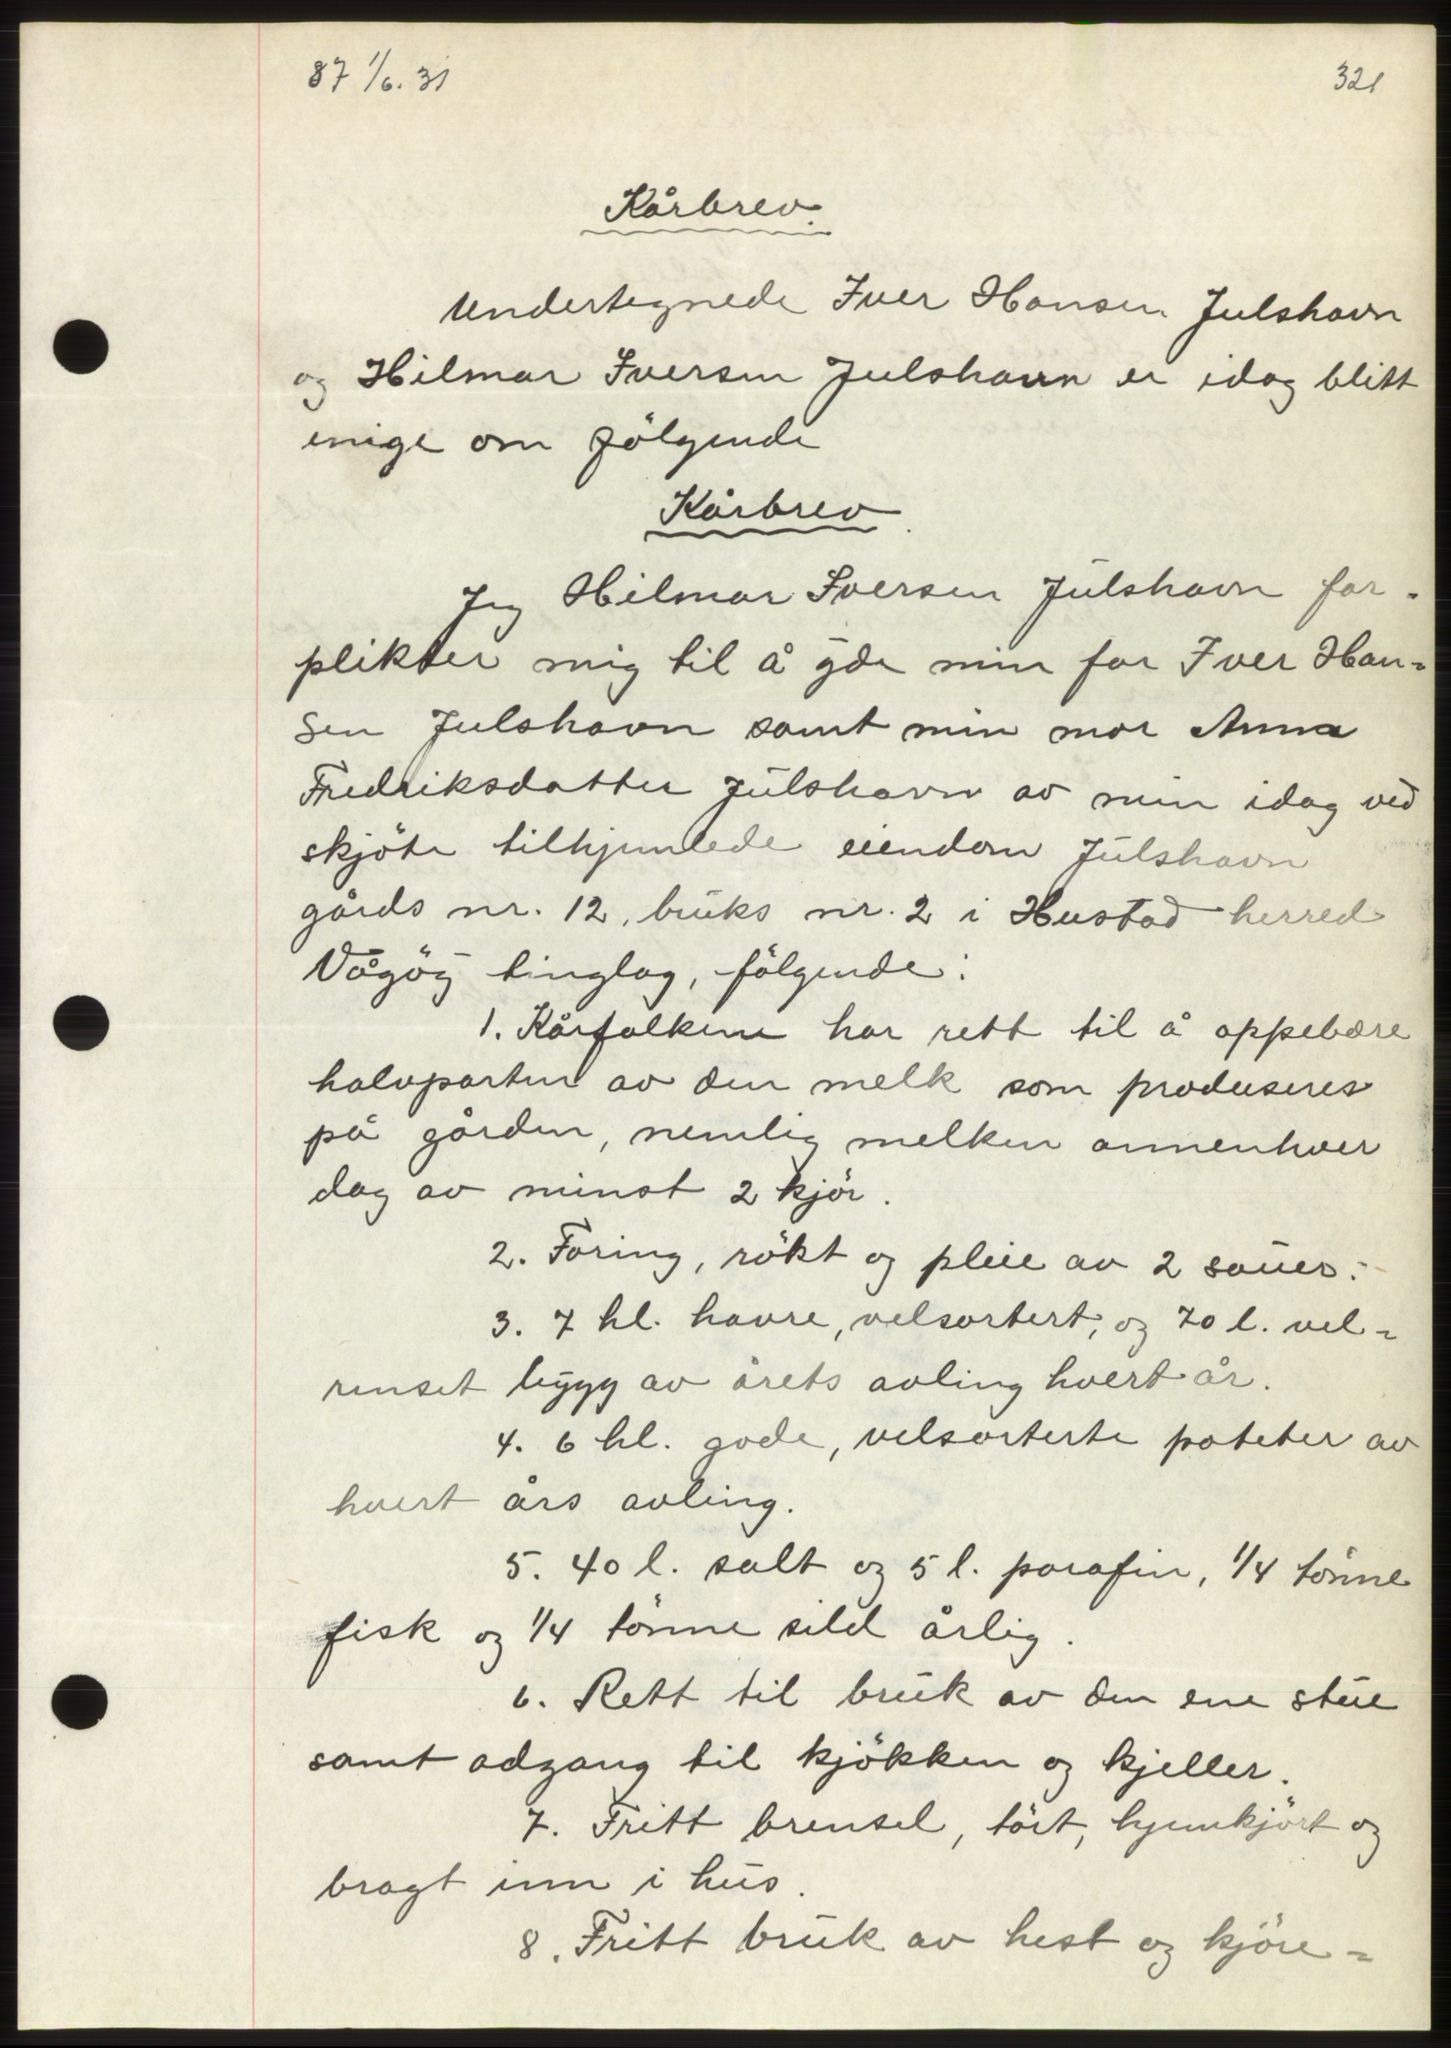 87 1/6. 31
321
Kårbrev.
Undertegnede Iver Hansen Julshavn
og Hilmar Iversen Julshavn er idag blitt
enige om følgende
Kårbrev.
Jeg Hilmar Iversen Julshavn for-
plikter mig til å yde min far Iver Han=
sen Julshavn samt min mor Anna
Fredriksdatter Julshavn av min idag ved
skjöte tilhjemlede eiendom Julshavn
gårds nr. 12, bruks nr. 2 i Hustad herred
Vågöy tinglag, fölgende:
1. Kårfolkene har rett til å oppebære
halvparten av den melk som produseres
på gården, nemlig melken annenhver
dag av minst 2 kjör.
2. Foring, rökt og pleie av 2 sauer.
3. 7 hl. havre, velsortert, og 70 l. vel=
renset bygg av årets avling hvert år.
4. 6 hl. gode, velsorterte poteter av
hvert års avling.
5. 40 l. salt og 5 l. parafin, 1/4 tönne
fisk og 1/4 tönne sild årlig.
6. Rett til bruk av den ene stue
samt adgang til kjökken og kjeller.
7. Fritt brensel, tört, hjemkjört og
bragt inn i hus.
8. Fritt bruk av hest og kjöre=